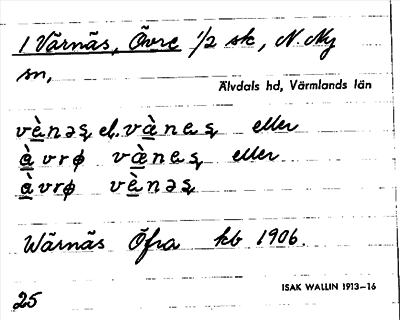 1 Värnäs, Övre 1/2 sk, N. Ny
sn,
Älvdals hd, Värmlands län
vè̱nəs̨ el. và̱nes̨ eller
à̱vrø và̱nes̨ eller
à̱vrø vè̱nəs̨
Wärnäs Öfra kb 1906.
ISAK WALLIN 1913–16
25